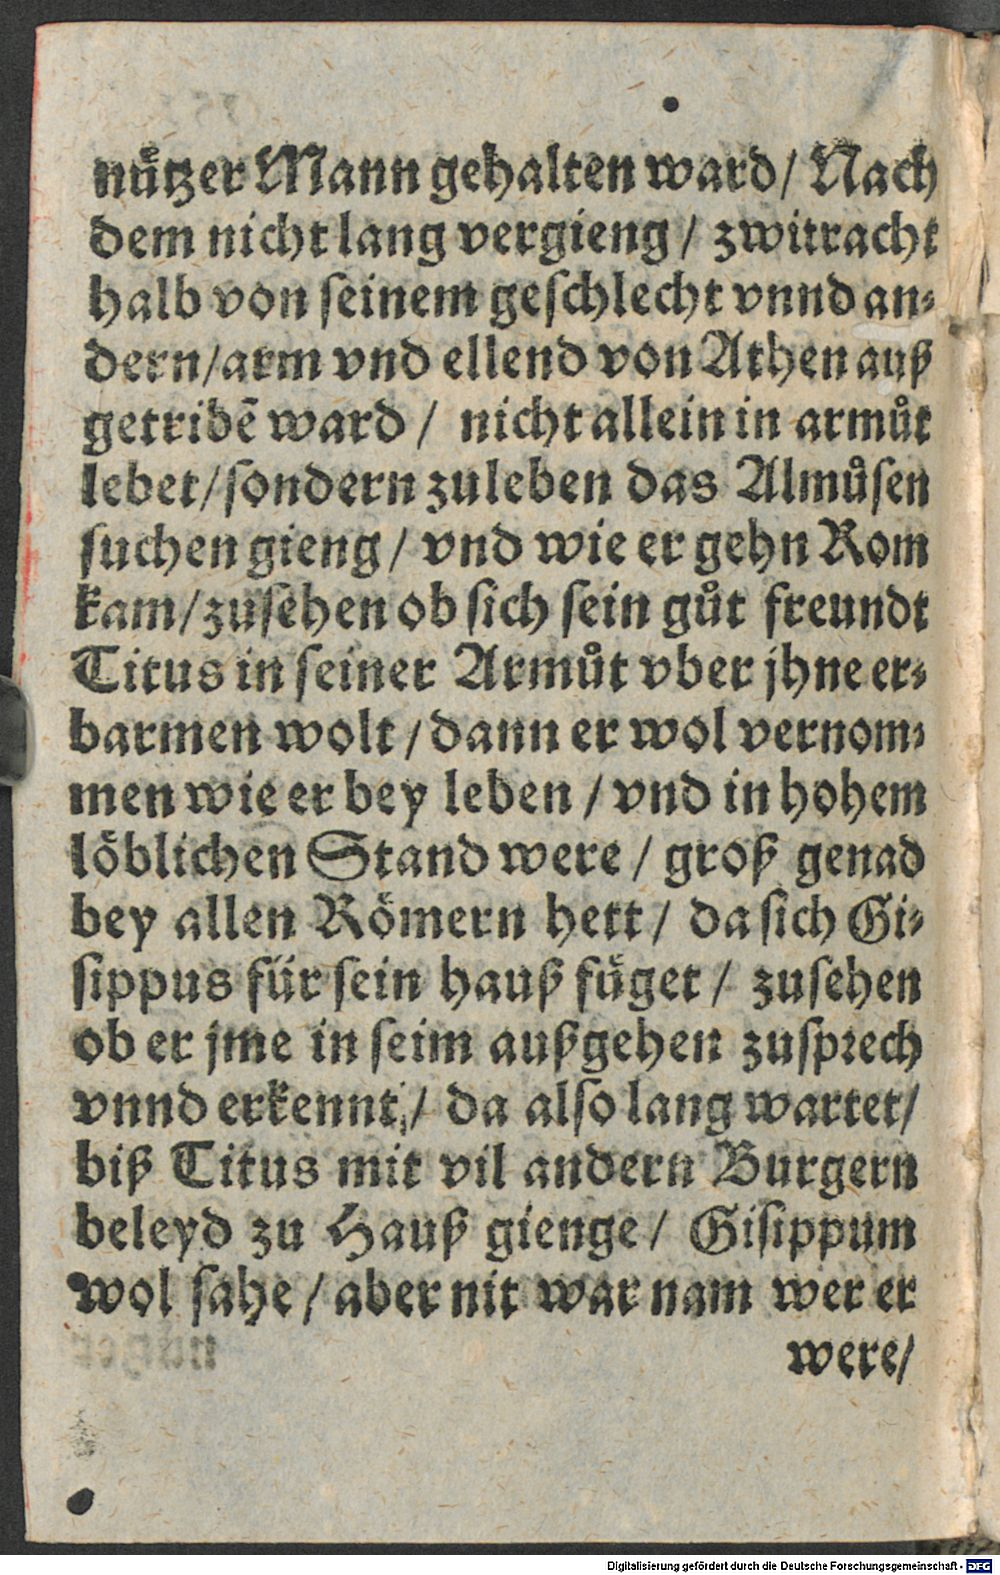 nützer Mann gehalten ward/ Nach
dem nicht lang vergieng/ zwitracht
halb von seinem geschlecht vnnd an-
dern/arm vnd ellend von Athen auß
getribē ward/ nicht allein in armůt
lebet/sondern zuleben das Almůsen
suchen gieng/ vnd wie er gehn Rom
kam/zusehen ob sich sein gůt freundt
Titus in seiner Armůt vber jhne er-
barmen wolt/dann er wol vernom-
men wie er bey leben/vnd in hohem
löblichen Stand were/ groß genad
bey allen Römern hett/ da sich Gi-
sippus für sein hauß füget/ zusehen
ob er jme in seim außgehen zusprech
vnnd erkennt/ da also lang wartet/
biß Titus mit vil andern Burgern
beleyd zu Hauß gienge/ Gisippum
wol sahe/aber nit war nam wer er
were/
Digitalisierung gefördert durch die Deutsche Forschungsgemeinschaft - DFG